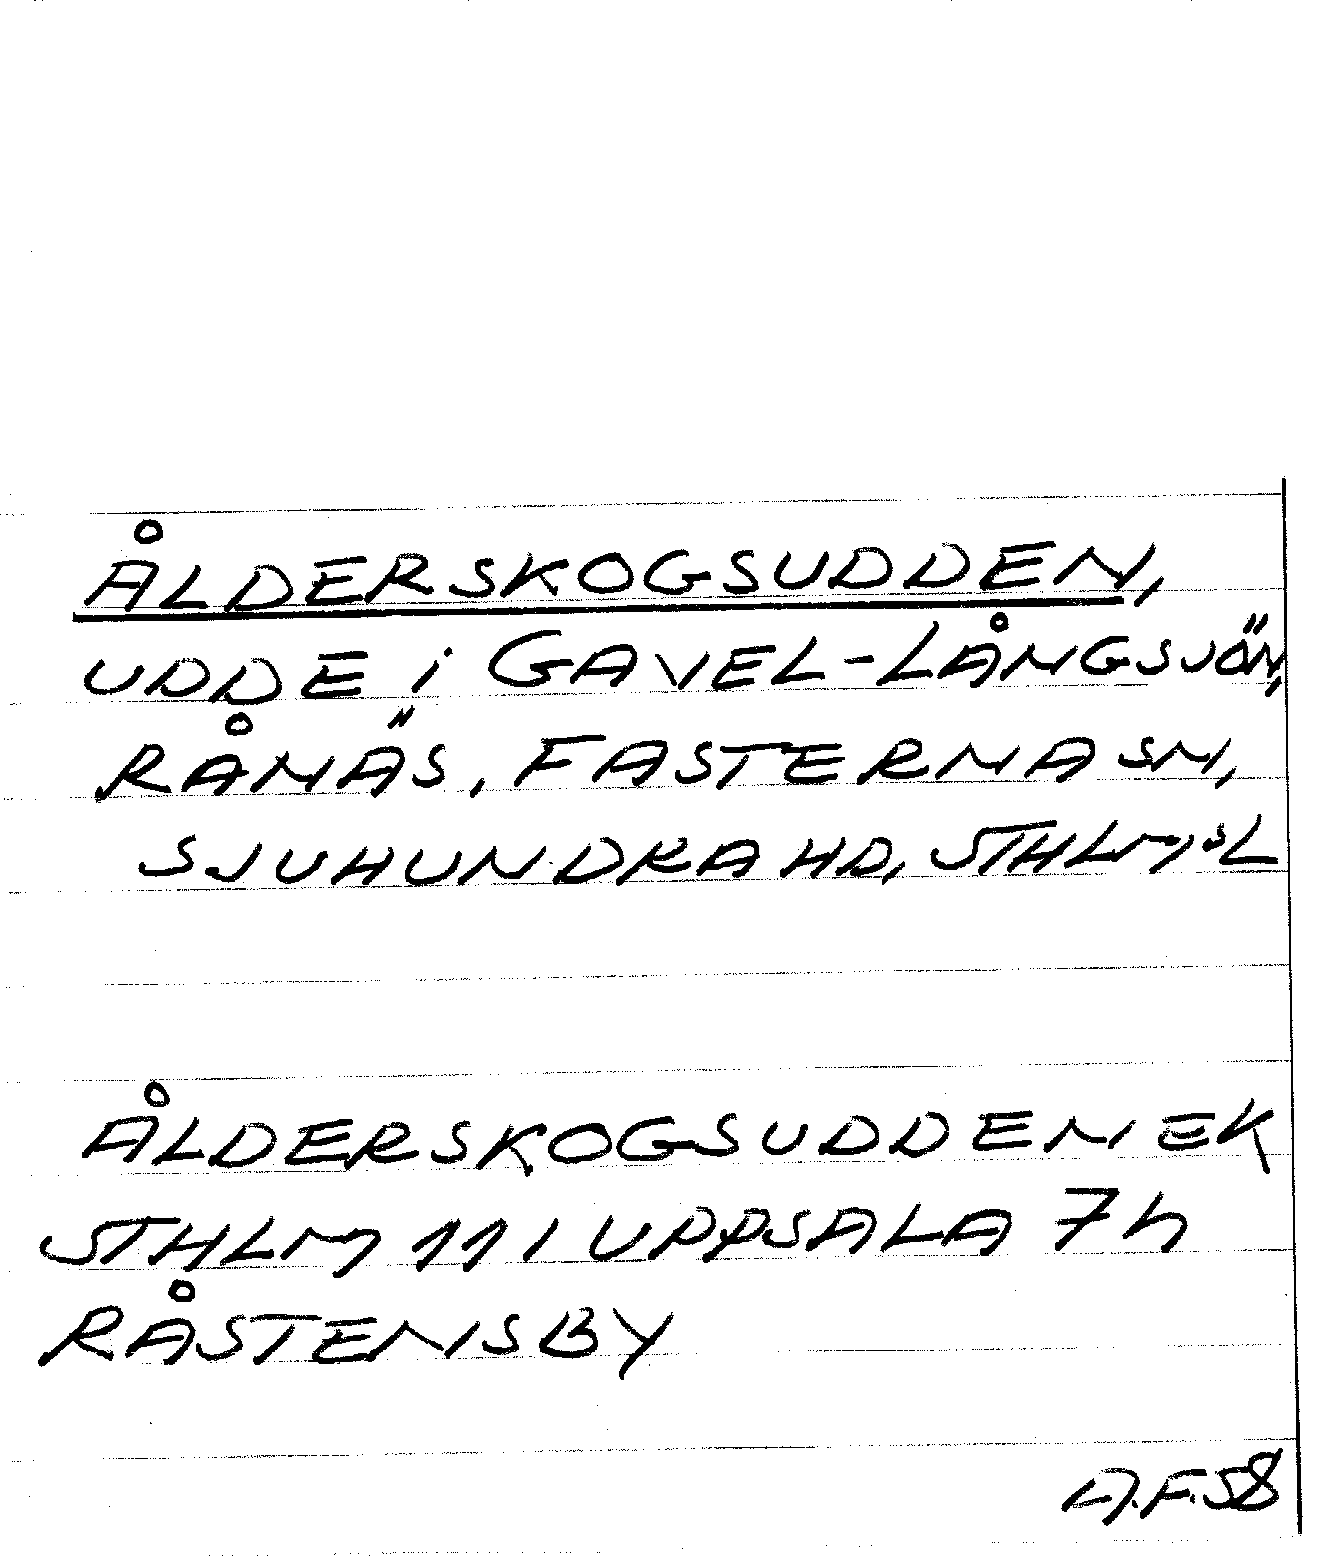 ÅLDERSKOGSUDDEN,
UDDE i GAVEL-LÅNGSJÖN,
RÅNÄS, FASTERNA SN,
SJUHUNDRA HD, STHLMS L
ÅLDERSKOGSUDDEN EK
STHLM 111 UPPSALA 7h
RÅSTENSBY
A.F.58